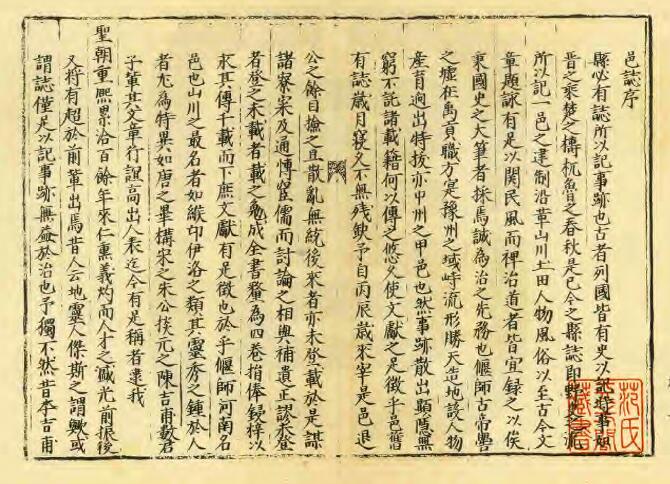 邑誌序
縣必有誌所以記事跡也古者列國皆有史以記時事
晉之乘楚之檮杌魯之春秋是已今之縣誌即
所以記一邑之建制沿革山川土田人物風俗以至古今文
章題詠有足以関民風而裨治道者皆宜録之以俟
秉國史之大筆者採焉誠為治之先務也偃師古帝嚳
之墟在禹貢職方寔豫州之域峙流形勝天造地設人物
產育逈出特拔亦中州之甲邑也然事跡散出顯隱無
窮不託諸載籍何以傳之悠久使文獻之足徵乎邑舊
有誌歲月寖久不無殘缺予自丙辰歲來宰是邑退
公之餘目撿之且散亂無統後來者亦未登載於是謀
諸寮寀及通博宦儒而討論之相與補遺正謬未登
者登之未載者載之免成全書釐為四卷捐俸鋟梓以
永其傳千載而下庶文獻有足徵也於乎偃師河南名
邑也山川之最名者如緱卬伊洛之類其靈秀之鍾於人
者尤為特異如唐之畢構宋之朱公掞元之陳吉甫數君
子軰其文章行誼高出人表迄今有足稱者逮我
聖朝重熈累洽百餘年來仁熏義灼而人才之盛光前振後
又將有超於前軰出焉昔人云地靈人傑斯之謂歟或
謂誌僅足以記事跡無益於治也予獨不然昔李吉甫